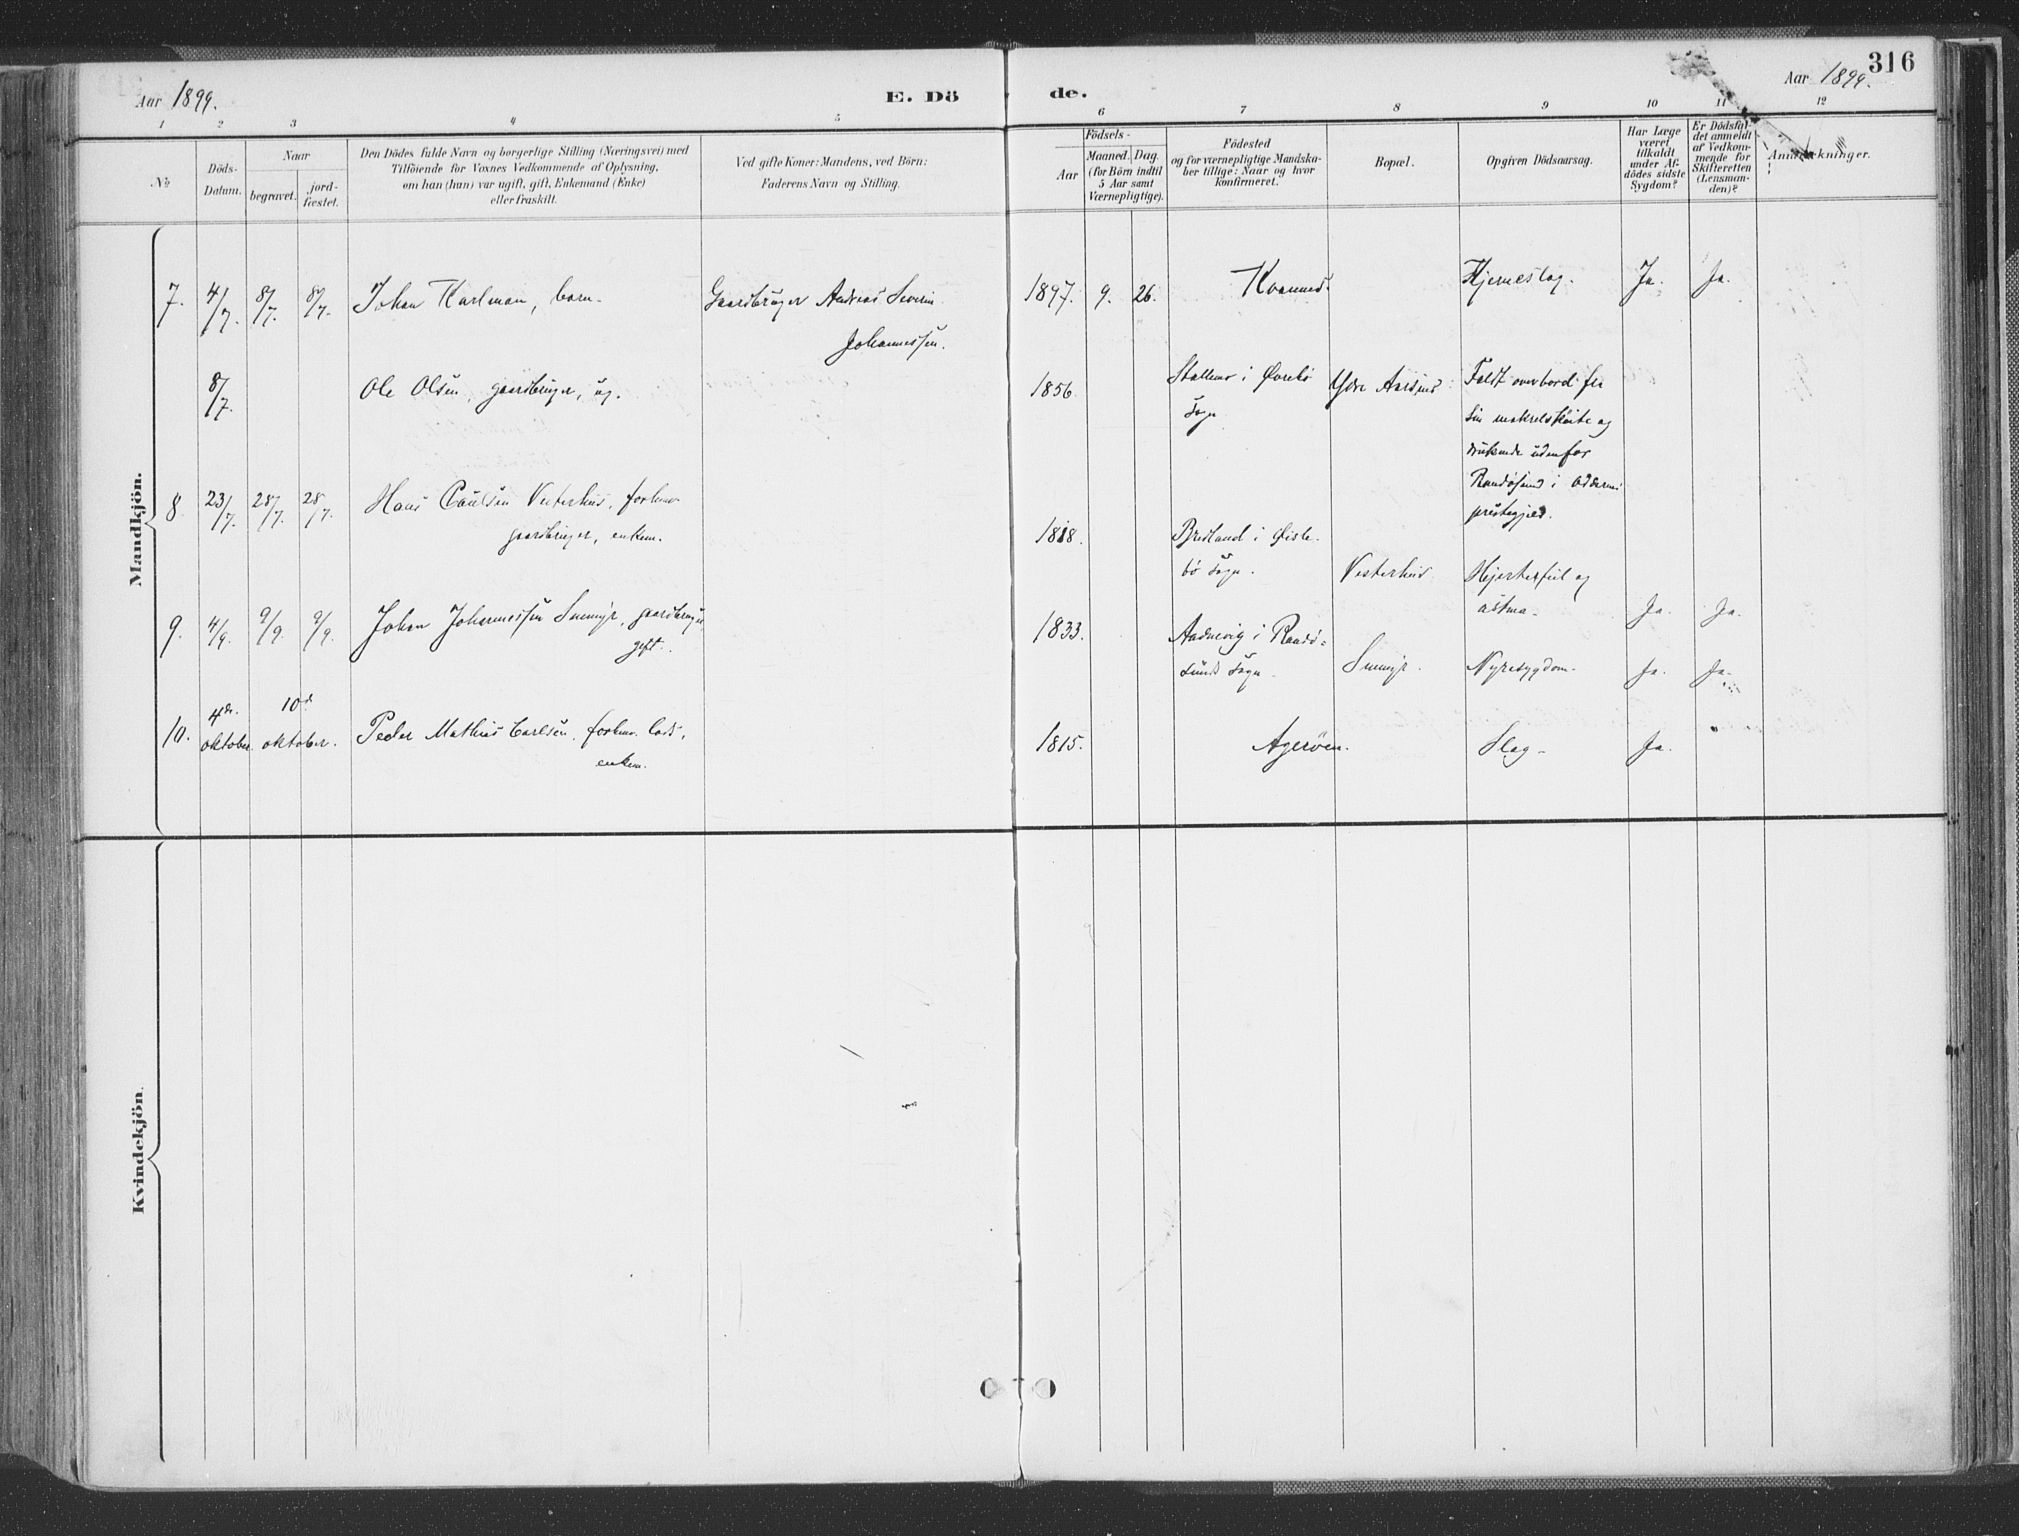 316
Aar 1899.
E. Dö
de.
Aar 1899.
1 2 3 4 5 6 7 8 9 10 11 12
№
Döds-
Datum.
Naar
begravet.
jord-
fæstet.
Den Dödes fulde Navn og borgerlige Stilling (Næringsvei) med
Tilföiende for Voxnes Vedkommende af Oplysning,
om han (hun) var ugift, gift, Enkemand (Enke)
eller fraskilt.
Ved gifte Koner: Mandens, ved Börn:
Faderens Navn og Stilling.
Födsels-
Aar
Maaned. Dag.
(for Börn indtil
5 Aar samt
Værnepligtige).
Födested
og for værnepligtige Mandska-
ber tillige: Naar og hvor
konfirmeret.
Bopæl.
Opgiven Dödsaarsag.
Har Læge
været
tilkaldt
under Af-
dödes sidste
Sygdom?
Er Dödsfal-
det anmeldt
af Vedkom-
mende for
Skifteretten
(Lensman-
den)?
Anmærkninger.
Mandkjön.
7. 4/7. 8/7. 8/7. Johan Karlman, barn. Gaardbruger Andreas Severin
Johannessen.
1897. 9. 26. Kvannes. Hjerneslag. Ja. Ja.
8/7. Ole Olsen, gaardbruger, ug.
1856 i Øvrebø
sogn
Ydre Aarsnes
Faldt overbord fra
sin makrelskøite og
druknede udenfor
Randøsund i Oddernes
prestegjeld.
8. 23/7. 28/7. 28/7. Hans Paulsen Vesterhus, forhenv.
gaardbruger, enkem.
1818. i Øisle-
bø sogn.
Vesterhus
Hjertefeil og
astma. Ja. Ja.
9. 4/9. 9/9. 9/9. Johan Johannessen gaardbruger
gift.
1833. i Randø-
sunds sogn
Nyresygdom. Ja. Ja.
10. 4de
oktober. 10de
oktober. Peder Mathias Carlsen, forhenv. lods,
enkem.
1815. Agerøen. Slag. Ja. "
Kvindekjön.